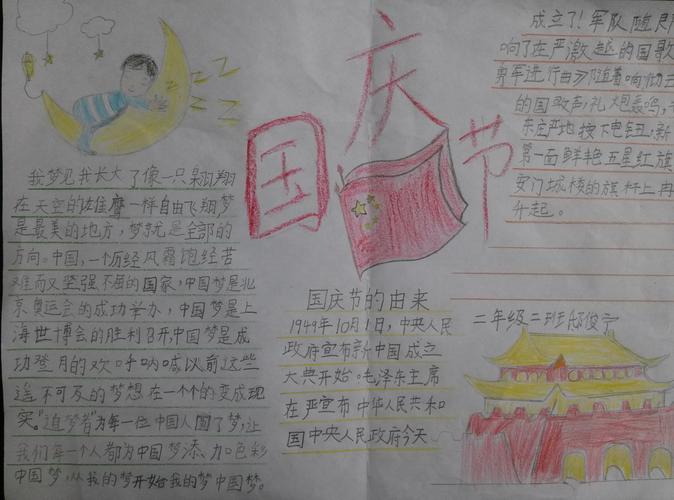 国庆节
我梦见我长大了像一只翱翔
在天空的雄鹰一样自由飞翔梦
是最美的地方，梦就是全部的
方向。中国，一个历经风霜饱经苦
难而又坚强不屈的国家，中国梦是北
京奥运会的成功举办，中国梦是上
海世博会的胜利召开，中国梦是成
功登月的欢呼呐喊以前这些
遥不可及的梦想在一个个的变成现
实。“追梦者”为每一位中国人圆了梦，让
我们每一个人都为中国梦添加色彩
中国梦，从我的梦开始我的梦中国梦。
国庆节的由来
1949年10月1日，中央人民
政府宣布新中国成立
大典开始。毛泽东主席
在严宣布中华人民共和
国中央人民政府今天
成立了！军队随
响了在严激越的国歌
勇军进行曲》随着响彻
的国歌声，礼炮轰鸣，
东庄严地按下电钮，新
第一面鲜艳五星红旗
安门城楼的旗杆上冉
升起。
二年级二班邸俊宁